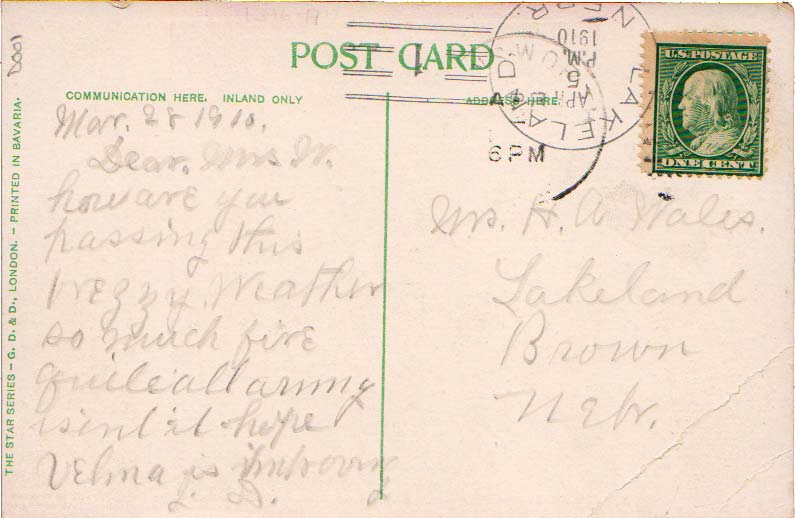 D001
POST CARD
COMMUNICATION HERE. INLAND ONLY
ADDRESS HERE.
THE STAR SERIES – G. D. & D., LONDON. – PRINTED IN BAVARIA.
LAKELAND NEBR.
APR 5 P.M. 1910
6 PM
U.S. POSTAGE
ONE CENT
Mar. 28 1910.
Dear, Mrs W.
how are you
passing this
Weather
so much fire
quite allarming
isint it hope
Velma is imbroving
Mrs. H. A Wales.
Lakeland
Brown
Nebr.